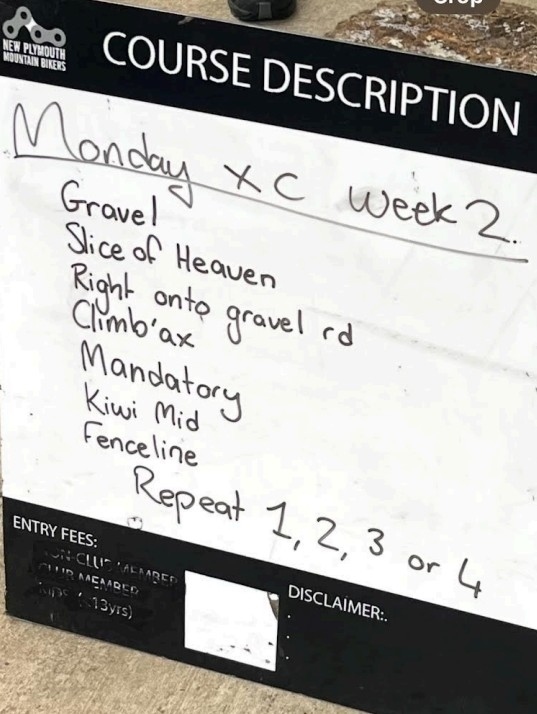 NEW PLYMOUTH
MOUNTAIN BIKERS
COURSE DESCRIPTION
Monday XC Week 2.
Gravel
Slice of Heaven
Right onto gravel rd
Climb'ax
Mandatory
Kiwi Mid
Fenceline
Repeat 1, 2, 3 or 4
ENTRY FEES:
NON-CLUB MEMBER
CLUB MEMBER
13yrs)
DISCLAIMER:.